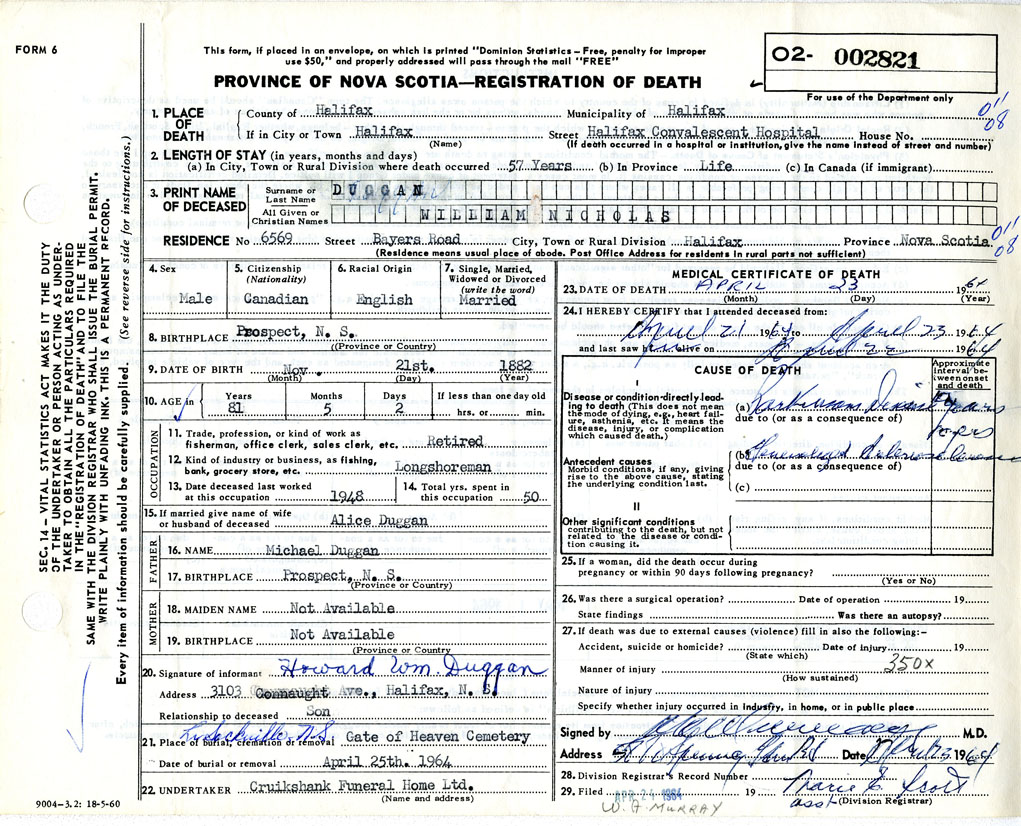 FORM 6
This form, if placed in an envelope, on which is printed "Dominion Statistics – Free, penalty for improper
use $50," and properly addressed will pass through the mail "FREE"
PROVINCE OF NOVA SCOTIA—REGISTRATION OF DEATH
02- 002821
For use of the Department only
1. PLACE OF DEATH
County of Halifax Municipality of Halifax
If in City or Town Halifax Street Halifax Convalescent Hospital House No.
(Name) (If death occurred in a hospital or institution, give the name instead of street and number)
011
08
2. LENGTH OF STAY (in years, months and days)
(a) In City, Town or Rural Division where death occurred 57 Years (b) In Province Life (c) In Canada (if immigrant)
3. PRINT NAME OF DECEASED
Surname or Last Name DUGGAN
All Given or Christian Names WILLIAM NICHOLAS
RESIDENCE No 6569 Street Bayers Road City, Town or Rural Division Halifax Province Nova Scotia
(Residence means usual place of abode. Post Office Address for residents in rural parts not sufficient)
011
08
4. Sex Male
5. Citizenship (Nationality) Canadian
6. Racial Origin English
7. Single, Married, Widowed or Divorced (write the word) Married
8. BIRTHPLACE Prospect, N. S.
(Province or Country)
9. DATE OF BIRTH Nov. 21st. 1882
(Month) (Day) (Year)
10. AGE in Years Months Days If less than one day old
81 5 2 hrs. or min.
OCCUPATION
11. Trade, profession, or kind of work as
fisherman, office clerk, sales clerk, etc. Retired
12. Kind of industry or business, as fishing,
bank, grocery store, etc. Longshoreman
13. Date deceased last worked at this occupation 1948
14. Total yrs. spent in this occupation 50
15. If married give name of wife
or husband of deceased Alice Duggan
FATHER
16. NAME Michael Duggan
17. BIRTHPLACE Prospect, N. S.
(Province or Country)
MOTHER
18. MAIDEN NAME Not Available
19. BIRTHPLACE Not Available
(Province or Country)
20. Signature of informant Howard Wm Duggan
Address 3103 Connaught Ave., Halifax, N. S.
Relationship to deceased Son
N.S.
21. Place of burial, cremation or removal Gate of Heaven Cemetery
Date of burial or removal April 25th. 1964
22. UNDERTAKER Cruikshank Funeral Home Ltd.
(Name and address)
MEDICAL CERTIFICATE OF DEATH
23. DATE OF DEATH APRIL 23 1964
(Month) (Day) (Year)
24. I HEREBY CERTIFY that I attended deceased from:
April 21 1964 to April 23 1964
and last saw h alive on April 22 1964
CAUSE OF DEATH
Approximate interval between onset and death
I
Disease or condition directly leading to death (This does not mean
the mode of dying, e.g., heart failure, asthenia, etc. It means the
disease, injury, or complication
which caused death.)
(a) Parkinson Disease years
due to (or as a consequence of)
Antecedent causes
Morbid conditions, if any, giving
rise to the above cause, stating
the underlying condition last.
(b) Generalized
due to (or as a consequence of)
(c)
II
Other significant conditions
contributing to the death, but not
related to the disease or condition causing it.
25. If a woman, did the death occur during
pregnancy or within 90 days following pregnancy?
(Yes or No)
26. Was there a surgical operation? Date of operation 19
State findings Was there an autopsy?
27. If death was due to external causes (violence) fill in also the following:–
Accident, suicide or homicide? Date of injury 19
(State which)
Manner of injury 350x
(How sustained)
Nature of injury
Specify whether injury occurred in industry, in home, or in public place
Signed by M.D.
Address Spring Date April 23 1964
28. Division Registrar's Record Number
29. Filed APR 24 1964 19 Marie E Scott
asst (Division Registrar)
W. A. MURRAY
SEC. 14 – VITAL STATISTICS ACT MAKES IT THE DUTY
OF THE UNDERTAKER OR PERSON ACTING AS UNDERTAKER
TO OBTAIN ALL THE PARTICULARS REQUIRED
IN THE "REGISTRATION OF DEATH" AND TO FILE THE
SAME WITH THE DIVISION REGISTRAR WHO SHALL ISSUE THE BURIAL PERMIT.
WRITE PLAINLY WITH UNFADING INK. THIS IS A PERMANENT RECORD.
Every item of information should be carefully supplied. (See reverse side for instructions.)
9004–3.2: 18-5-60